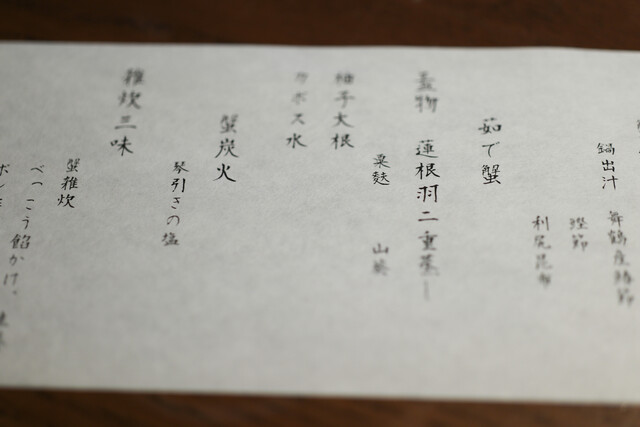 鍋出汁
舞鶴産鰹節
鰹節
利尻昆布
茹で蟹
蓋物 蓮根羽二重蒸し
粟麩 山葵
柚子大根
カボス水
蟹炭火
琴引きの塩
雑炊三味
蟹雑炊
べっこう餡かけ、